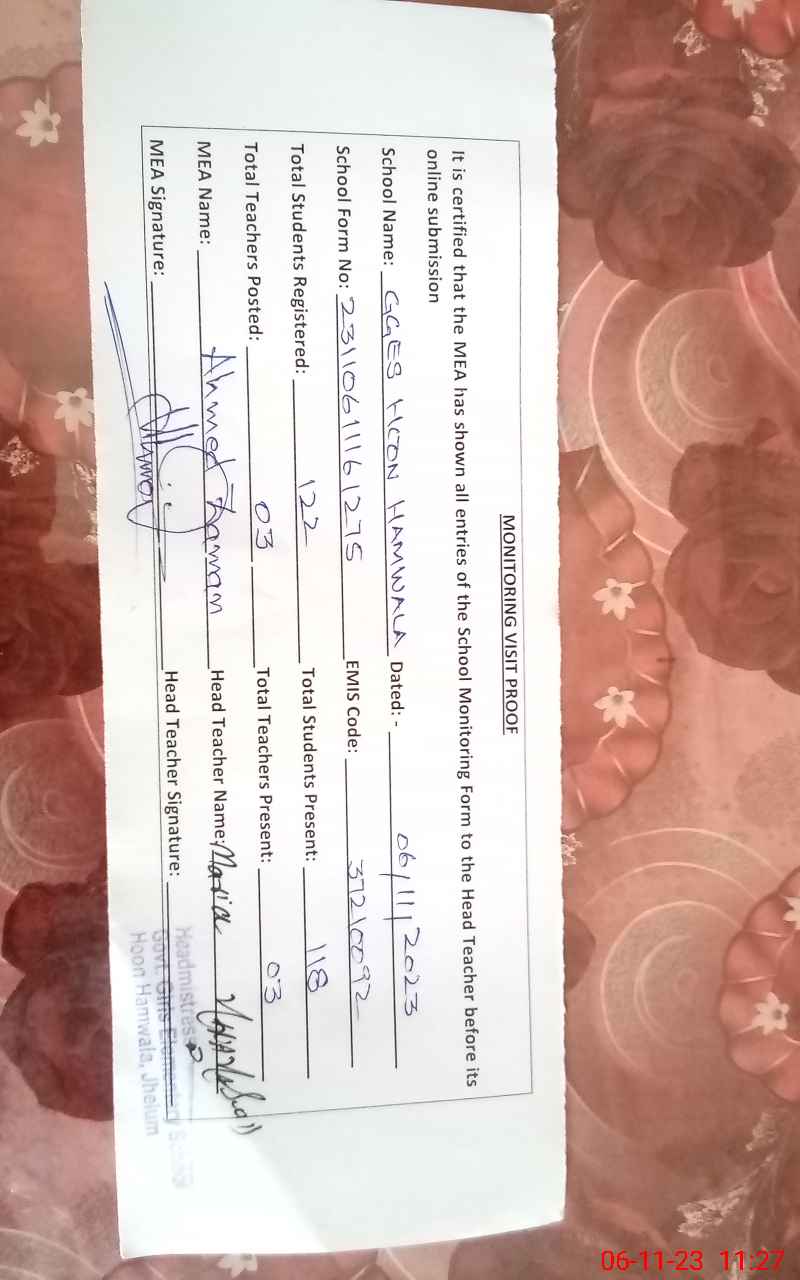 MONITORING VISIT PROOF
It is certified that the MEA has shown all entries of the School Monitoring Form to the Head Teacher before its
online submission
School Name: GGES HOON HAMWALA Dated: - 06/11/2023
School Form No: 231106111161275 EMIS Code: 37210092
Total Students Registered: 122 Total Students Present: 118
Total Teachers Posted: 03 Total Teachers Present: 03
MEA Name: Ahmed Zaman Head Teacher Name: Maria
MEA Signature: Head Teacher Signature:
Headmistress
Govt. Girls Elementary School
Hoon Hamwala, Jhelum
06-11-23 11:27